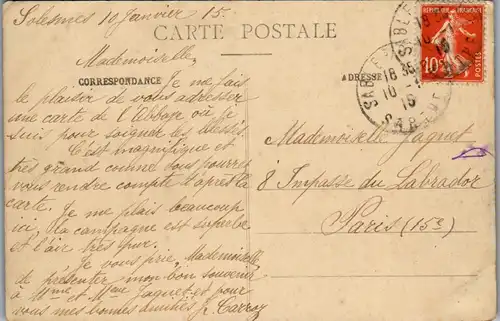 Solesmes 10 Janvier 15.
CARTE POSTALE
Mademoiselle,
CORRESPONDANCE
Je me fais
le plaisir de vous adresser
une carte de l'Abbaye où je
suis pour soigner les blessés
C'est magnifique et
très grand comme vous pourrez
vous rendre compte d'après la
carte. Je me plais beaucoup
ici, la campagne est superbe
et l'air très pur.
Je vous prie, Mademoiselle
de présenter mon bon souvenir
à Mme et Mr Jaquet et pour
vous mes bonnes amitiés
ADRESSE
Mademoiselle Jaquet
8 Impasse du Labrador
Paris (15e)
10c
POSTES
SABLÉ
SARTHE